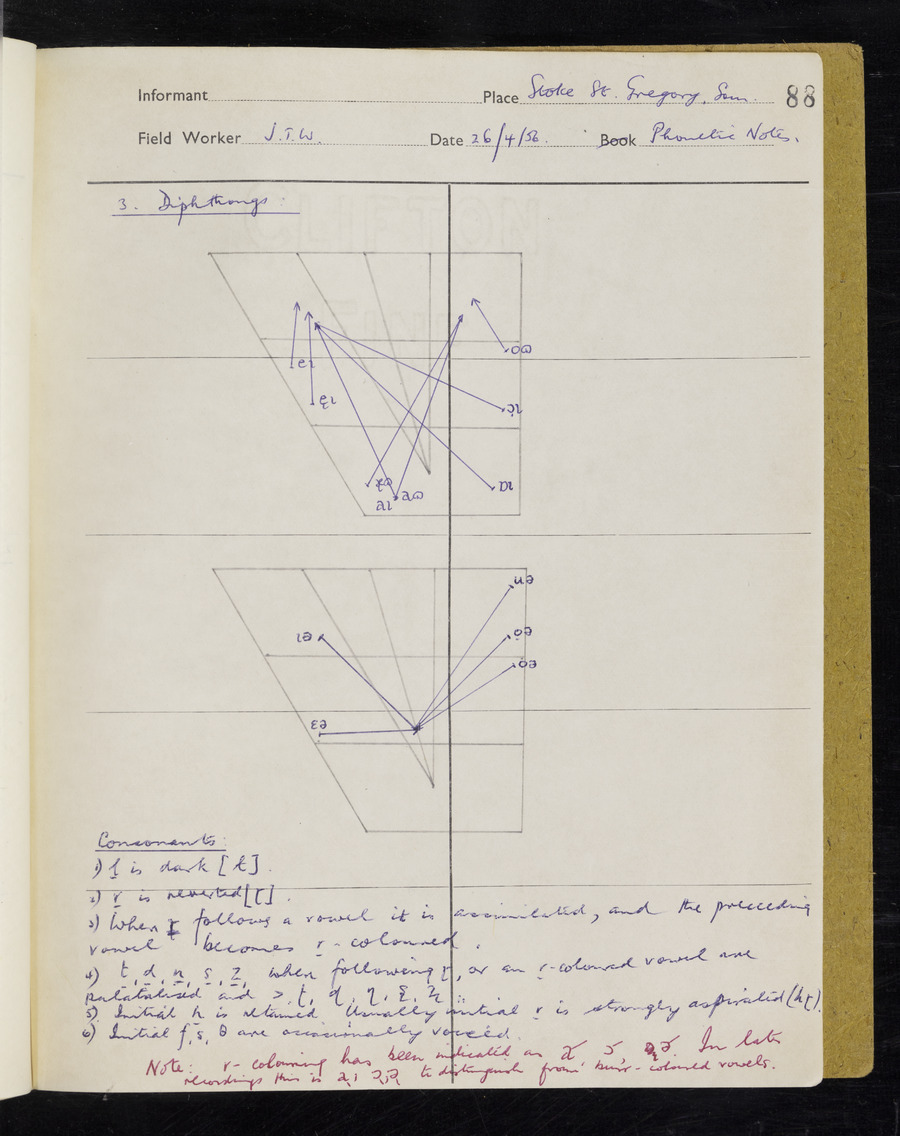 Informant Place Stoke St. Gregory, Som. 88
Field Worker J.T.W. Date 26/4/56. Book Phonetic Notes.
3. Diphthongs:
eɪ
oɷ
ɔ̣ɪ
ɒɪ
aɷ
aɪ
uə
ɪə
oə
ɛə
Consonants:
1) l is dark [ɫ].
2) r is reverted [ɽ].
3) When r follows a vowel it is assimilated, and the preceeding
vowel becomes r-coloured.
4) t, d, n, s, z, when following r, or an r-coloured vowel are
palatalised and > ʈ, ɖ, ɳ, ʂ, ʐ
5) Initial h is retained. Usually initial r is strongly aspirated (hɽ).
6) Initial f, s, θ are occasionally voiced.
Note: r-colouring has been indicated as In late
recordings this is to distinguish from burr-coloured vowels.